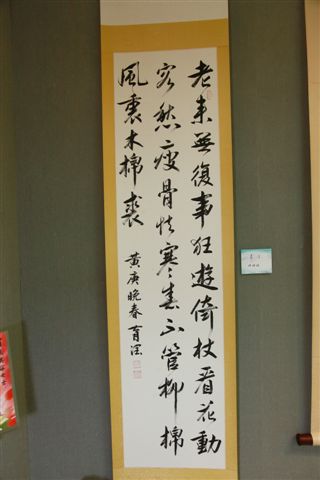 老來無復事狂遊倚杖看花動
客愁瘦骨怯寒春不管柳棉
風裏木棉裘
黃庚晚春 育